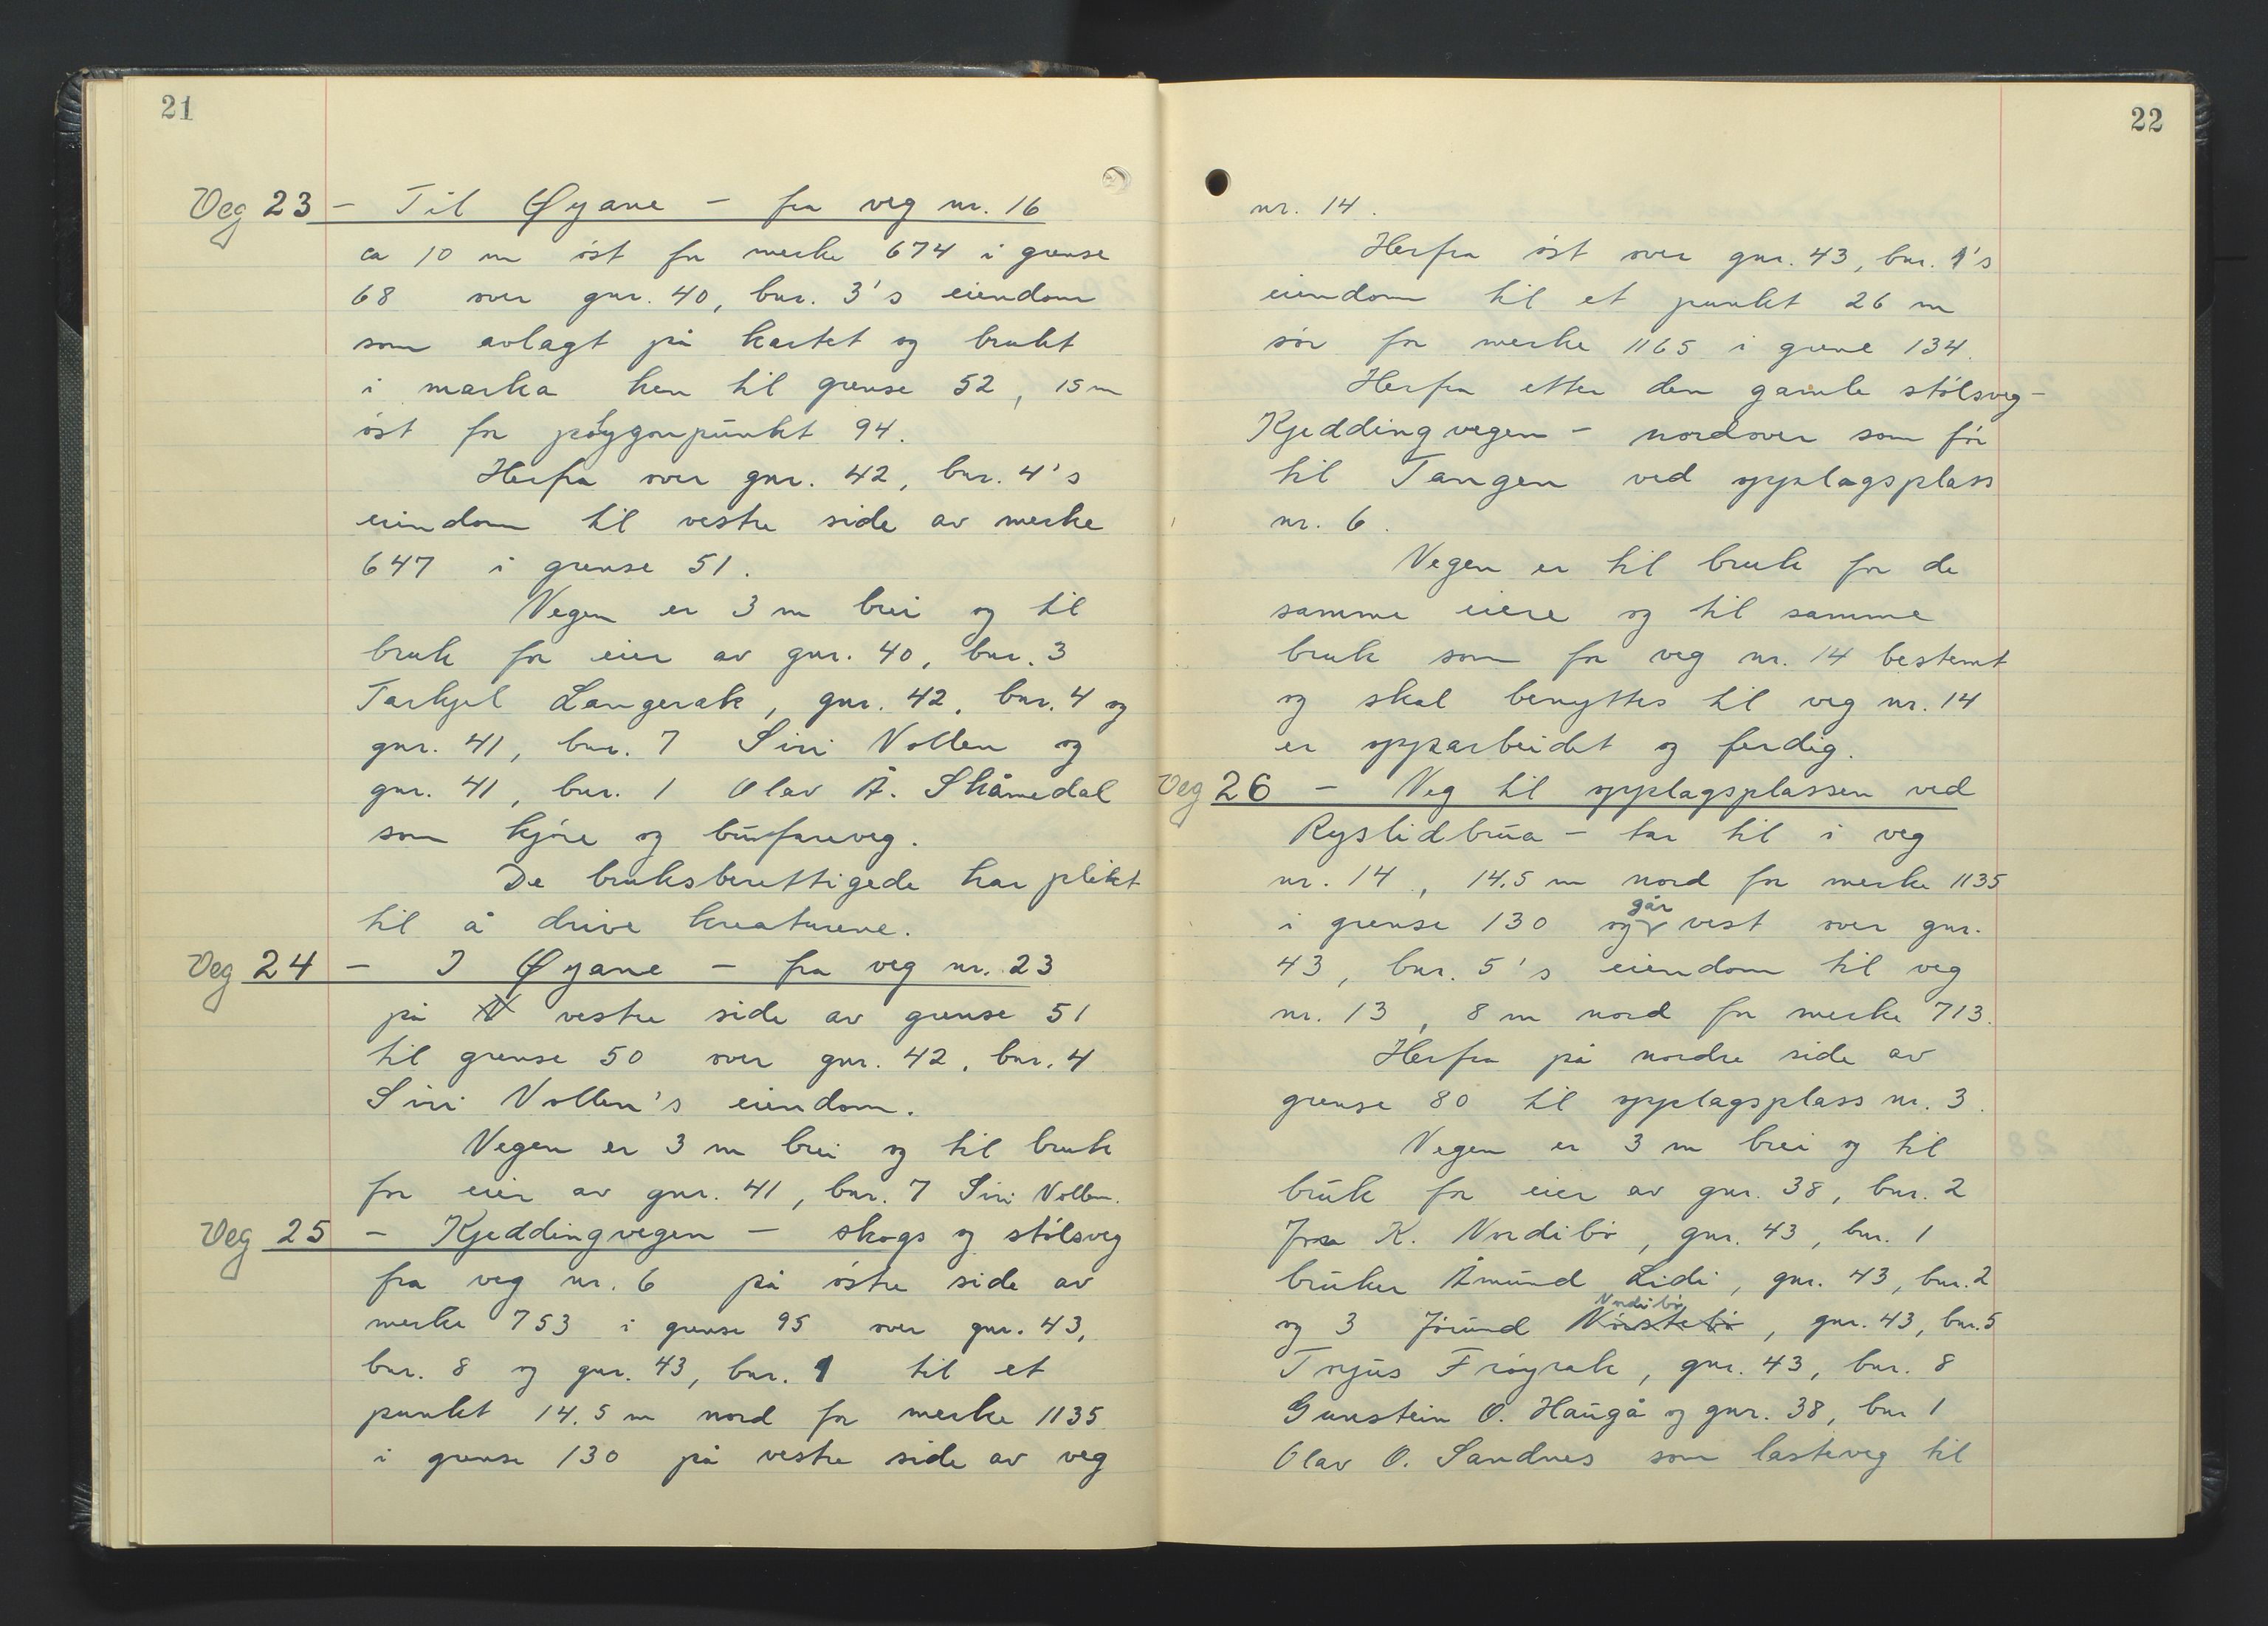 21
Veg 23 - Til Øyane - fra veg nr. 16
ca 10 m øst for merke 674 i grense
68 over gnr. 40, bnr. 3's eiendom
som avlagt på kartet og brukt
i marka hen til grense 52, 15 m
øst for polygonpunkt 94.
Herfra over gnr. 42, bnr. 4's
eiendom til vestre side av merke
647 i grense 51.
Vegen er 3 m brei og til
bruk for eier av gnr. 40, bnr. 3
Tarkjel Langerak, gnr. 42, bnr. 4 og
gnr. 41, bnr. 7 Siri Vollen og
gnr. 41, bnr. 1 Olav Å. Skåmedal
som kjøre og bufareveg.
De bruksberettigede har plikt
til å drive kreaturene.
Veg 24 - I Øyane - fra veg nr. 23
på vestre side av grense 51
til grense 50 over gnr. 42, bnr. 4
Siri Vollen's eiendom.
Vegen er 3 m brei og til bruk
for eier av gnr. 41, bnr. 7 Siri Vollen.
Veg 25 - Kjeddingvegen - skogs og stølsveg
fra veg nr. 6 på østre side av
merke 753 i grense 95 over gnr. 43,
bnr. 8 og gnr. 43, bnr. 1 til et
punkt 14.5 m nord for merke 1135
i grense 130 på vestre side av veg
22
nr. 14.
Herfra øst over gnr. 43, bnr. 1's
eiendom til et punkt 26 m
sør for merke 1165 i grense 134.
Herfra etter den gamle stølsveg-
Kjeddingvegen - nordover som før
til Tangen ved opplagsplass
nr. 6.
Vegen er til bruk for de
samme eiere og til samme
bruk som for veg nr. 14 bestemt
og skal benyttes til veg nr. 14
er opparbeidet og ferdig.
Veg 26 - Veg til opplagsplassen ved
Ryslidbrua - tar til i veg
nr. 14, 14.5 m nord for merke 1135
i grense 130 og går vest over gnr.
43, bnr. 5's eiendom til veg
nr. 13, 8 m nord for merke 713.
Herfra på nordre side av
grense 80 til opplagsplass nr. 3.
Vegen er 3 m brei og til
bruk for eier av gnr. 38, bnr. 2
K. Nordibø, gnr. 43, bnr. 1
bruker Åmund Lidi, gnr. 43, bnr. 2
og 3 Jørund Nordibø, gnr. 43, bnr. 5
Torjus Frøyrak, gnr. 43, bnr. 8
Gunstein O. Haugå og gnr. 38, bnr 1
Olav O. Sandnes som lasteveg til